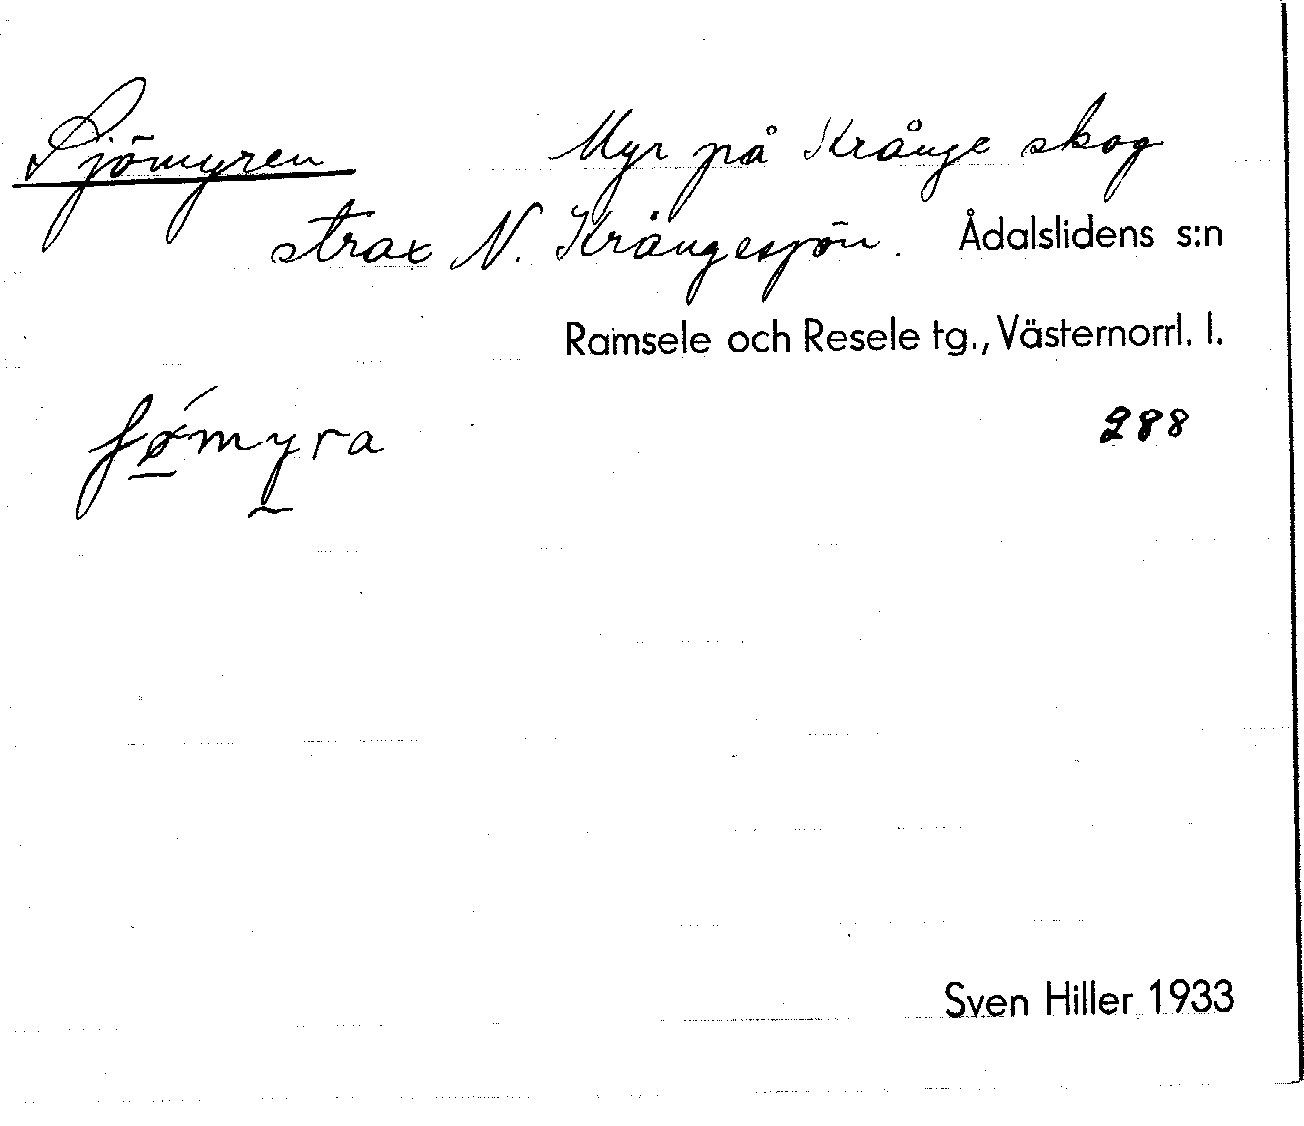 Sjömyren Myr på Krånge skog
strax N. Krångesjön. Ådalslidens s:n
Ramsele och Resele tg., Västernorrl. l.
ʃǿ̠my̰ra 288
Sven Hiller 1933